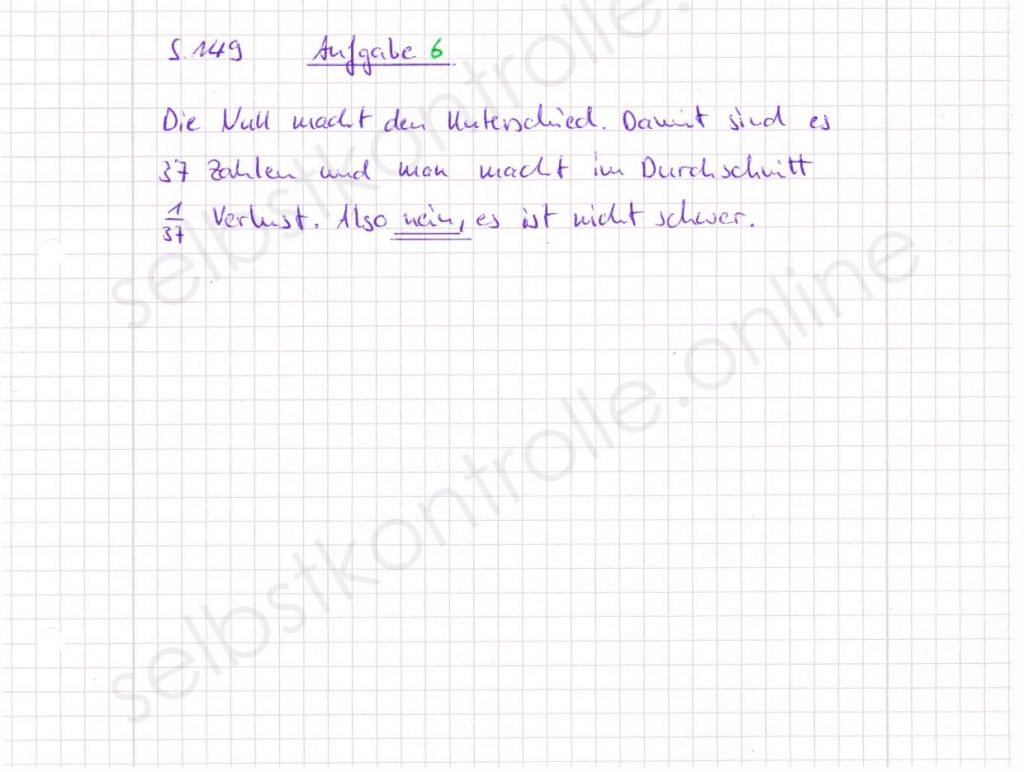 S. 149 Aufgabe 6
Die Null macht den Unterschied. Damit sind es
37 Zahlen und man macht im Durchschnitt
1/37 Verlust. Also nein, es ist nicht schwer.
selbstkontrolle.online
selbstkontrolle.online